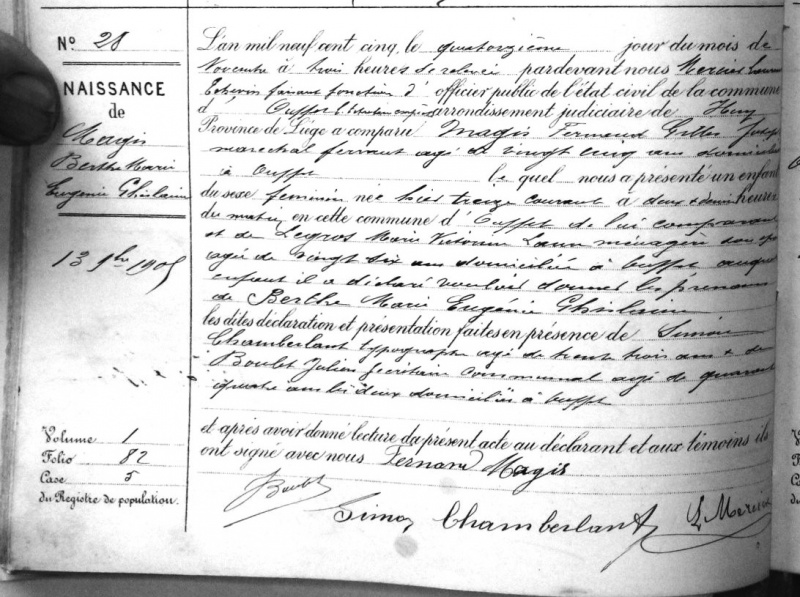 N° 28
NAISSANCE
de
Magis
Berthe Marie
Eugénie Ghislaine
13 9bre 1905
Volume 1
Folio 82
Case 5
du Registre de population.
L'an mil neuf cent cinq, le quatorzième jour du mois de
Novembre à trois heures de relevée pardevant nous
Echevin faisant fonction d'officier public de l'état civil de la commune
d'Ouffet arrondissement judiciaire de Huy
Province de Liége a comparu Magis Fernand Gilles Joseph
maréchal ferrant agé de vingt cinq ans domicilié
à Ouffet le quel nous a présenté un enfant
du sexe féminin née hier treize courant à deux & demi heures
du matin, en cette commune d'Ouffet de lui comparant
et de Legros Marie Victorine Laure ménagère son
agée de vingt six ans domiciliée à Ouffet auquel
enfant il a déclaré vouloir donner les prénoms
de Berthe Marie Eugénie Ghislaine
les dites déclaration et présentation faites en présence de Simon
Chamberlant typographe agé de trente trois ans & de
Boulet Julien secrétaire communal agé de quarante
quatre ans les deux domiciliés à Ouffet
et après avoir donné lecture du présent acte au déclarant et aux témoins ils
ont signé avec nous Fernand Magis
JBoulet
Simon Chamberlant